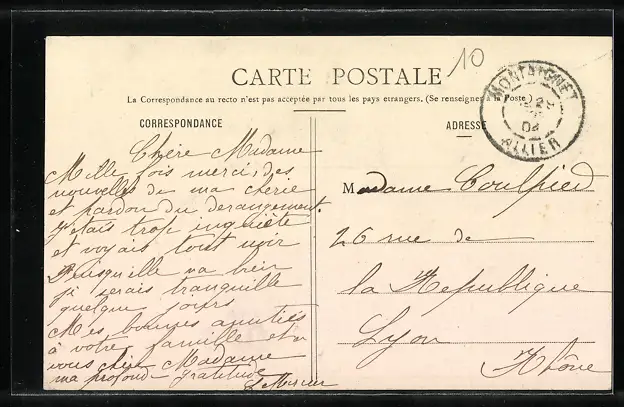 10
CARTE POSTALE
La Correspondance au recto n'est pas acceptée par tous les pays etrangers. (Se renseigner à la Poste)
CORRESPONDANCE
ADRESSE
MONTAIGNET
29
04
ALLIER
Chère Madame
Mille fois merci, des
nouvelles de ma cherie
et pardon du derangement.
J'etais trop inquiète
et voyais tout noir
Puisqu'ille va bien
je serais tranquille
quelque jours
Mes bonnes amitiés
à votre famille et a
vous chère Madame
ma profonde gratitude
L. Mercier
Madame Coulpied
26 rue de
la Republique
Lyon
Rhône